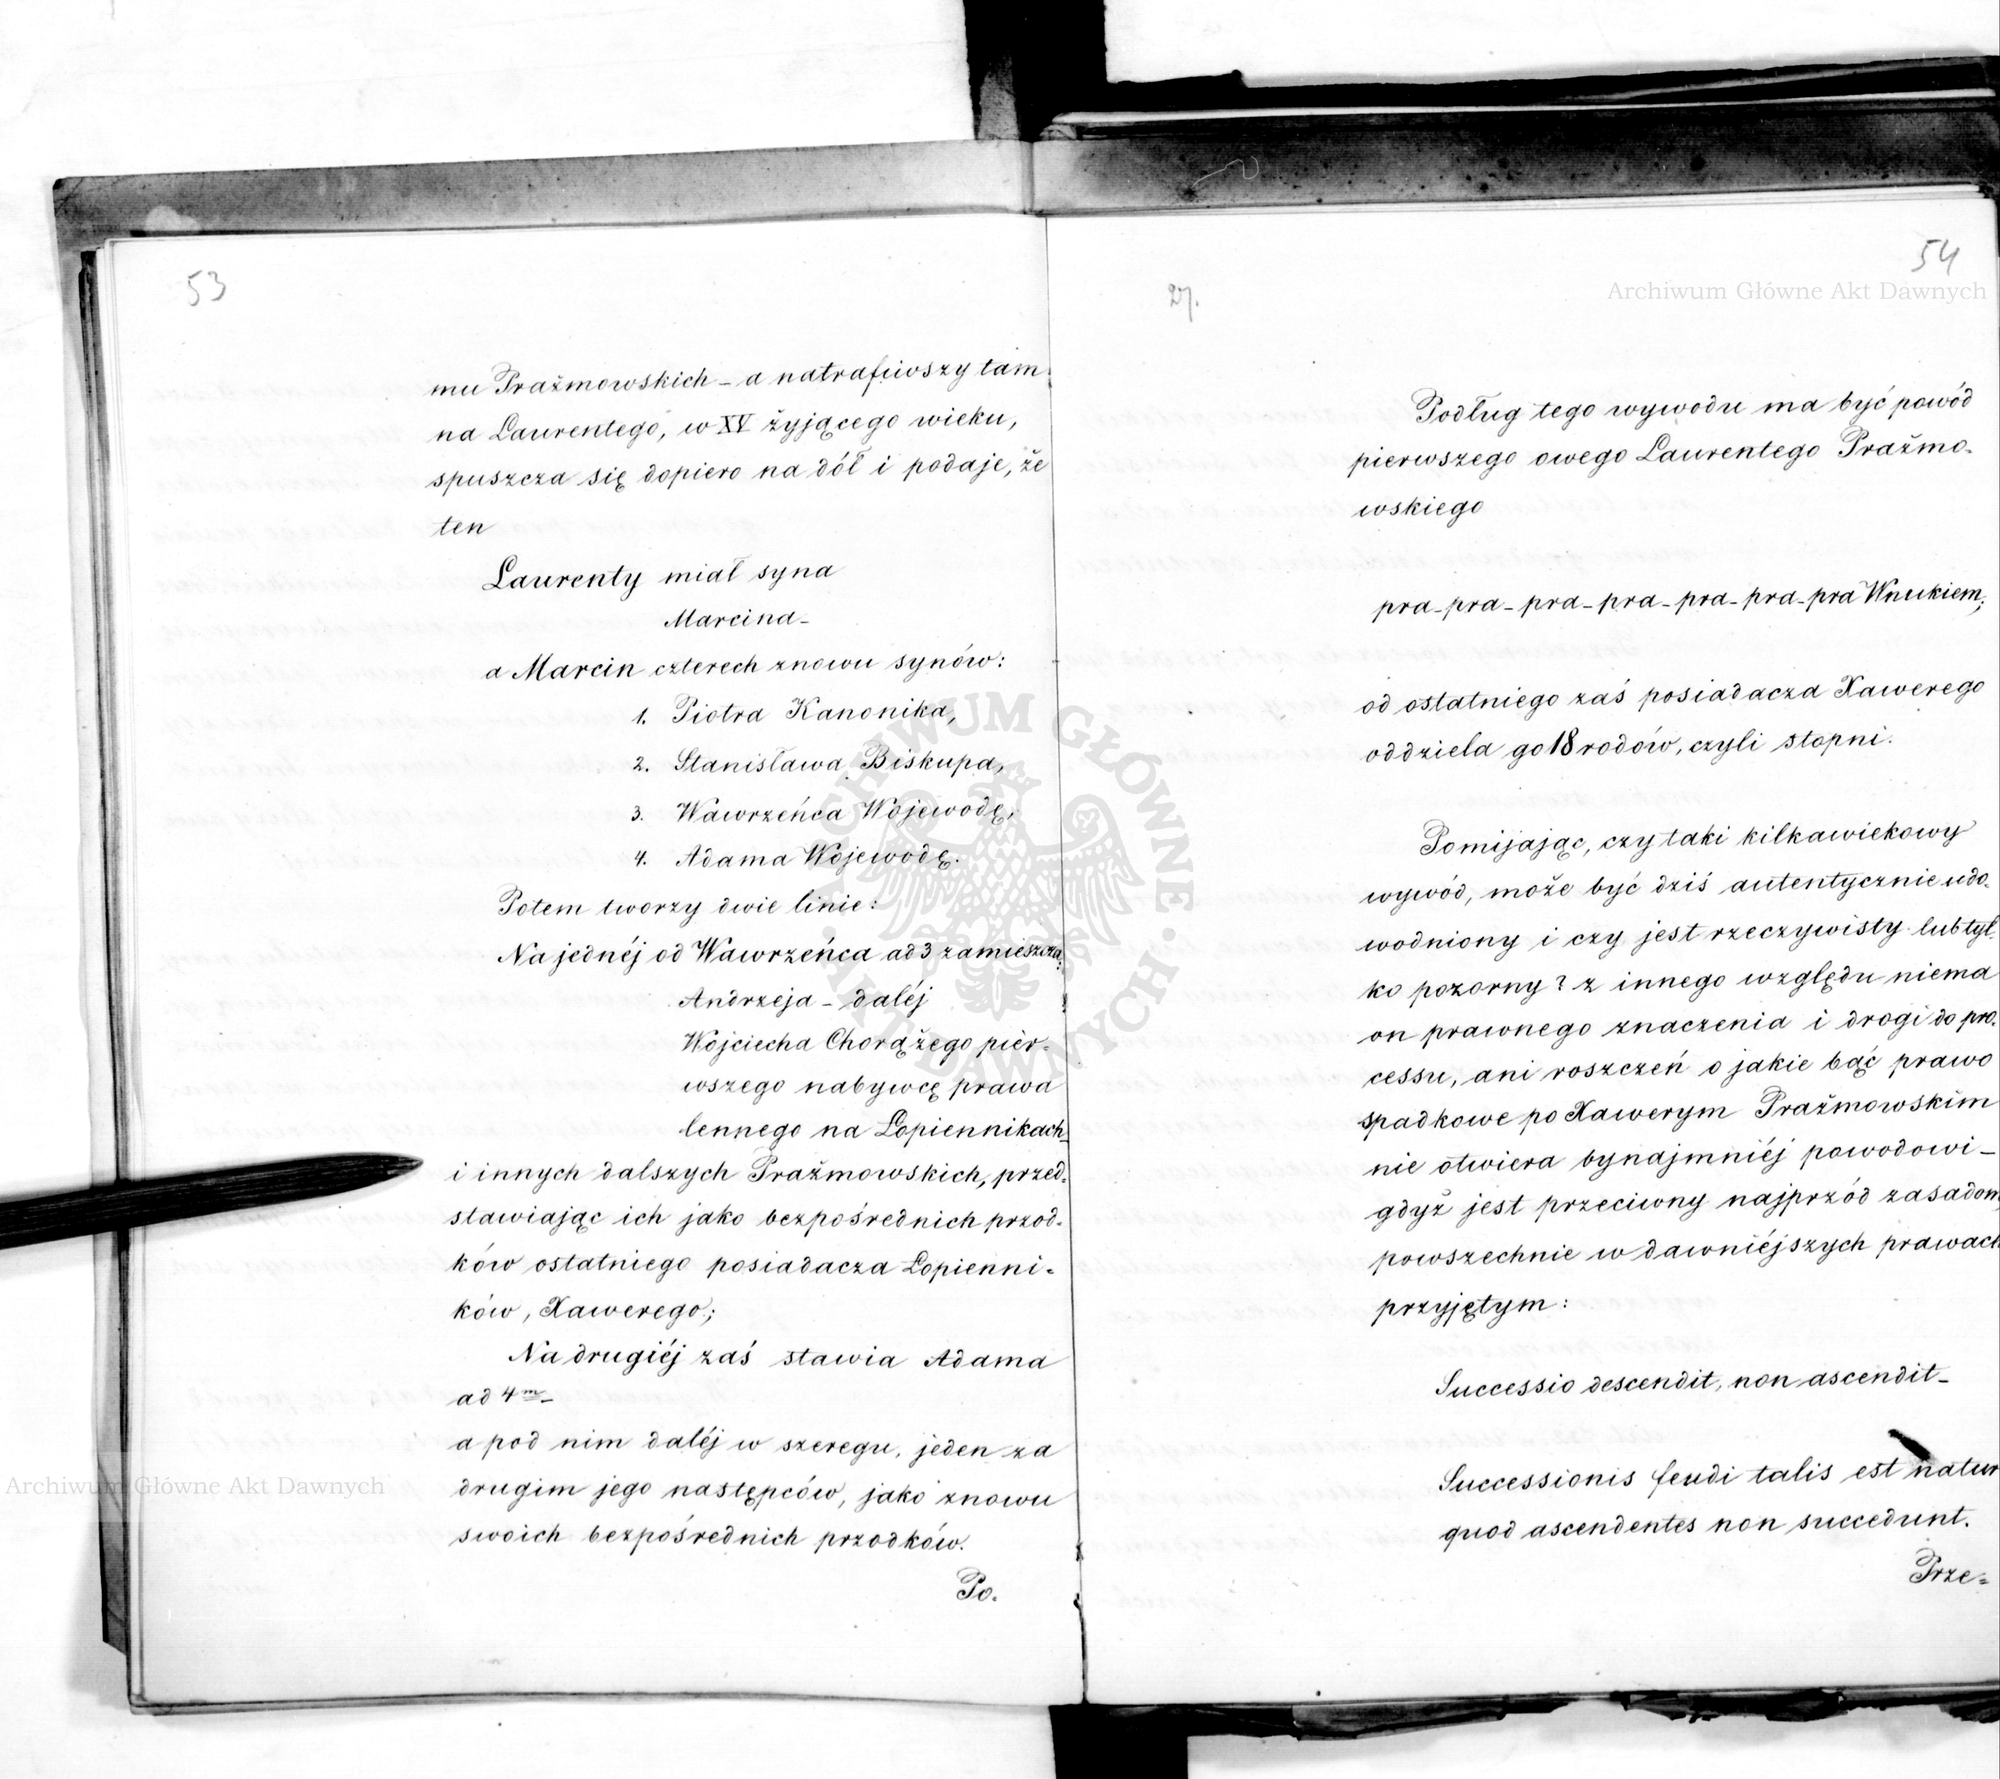 53
mu Prażmowskich – a natrafiwszy tam
na Laurentego, w XV żyjącego wieku,
spuszcza się dopiero na dół i podaje, że
ten
Laurenty miał syna
Marcina –
a Marcin czterech znowu synów:
1. Piotra Kanonika,
2. Stanisława Biskupa,
3. Wawrzeńca Wojewodę,
4. Adama Wojewodę.
Potem tworzy dwie linie:
Na jednéj od Wawrzeńca ad 3 zamieszcza:
Andrzeja – daléj
Wojciecha Chorążego pier=
wszego nabywcę prawa
lennego na Łopiennikach –
i innych dalszych Prażmowskich, przed=
stawiając ich jako bezpośrednich przod=
ków ostatniego posiadacza Łopienni=
ków, Xawerego;
Na drugiéj zaś stawia Adama
ad 4m –
a pod nim daléj w szeregu, jeden za
drugim jego następców, jako znowu
swoich bezpośrednich przodków.
Po.
54
27.
Archiwum Główne Akt Dawnych
Podług tego wywodu ma być powód
pierwszego owego Laurentego Prażmo=
wskiego
pra – pra – pra – pra – pra – pra – pra Wnukiem;
od ostatniego zaś posiadacza Xawerego
oddziela go 18 rodów, czyli stopni.
Pomijając, czy taki kilkawiekowy
wywód, może być dziś autentycznie udo=
wodniony i czy jest rzeczywisty lub tyl=
ko pozorny? z innego względu niema
on prawnego znaczenia i drogi do pro=
cessu, ani roszczeń o jakie bąć prawo
spadkowe po Xawerym Prażmowskim
nie otwiera bynajmniéj powodowi –
gdyż jest przeciwny najprzód zasadom,
powszechnie w dawniéjszych prawach
przyjętym:
Successio descendit, non ascendit –
Successionis feudi talis est natur
quod ascendentes non succedunt.
Prze=
ARCHIWUM GŁÓWNE AKT DAWNYCH
Archiwum Główne Akt Dawnych